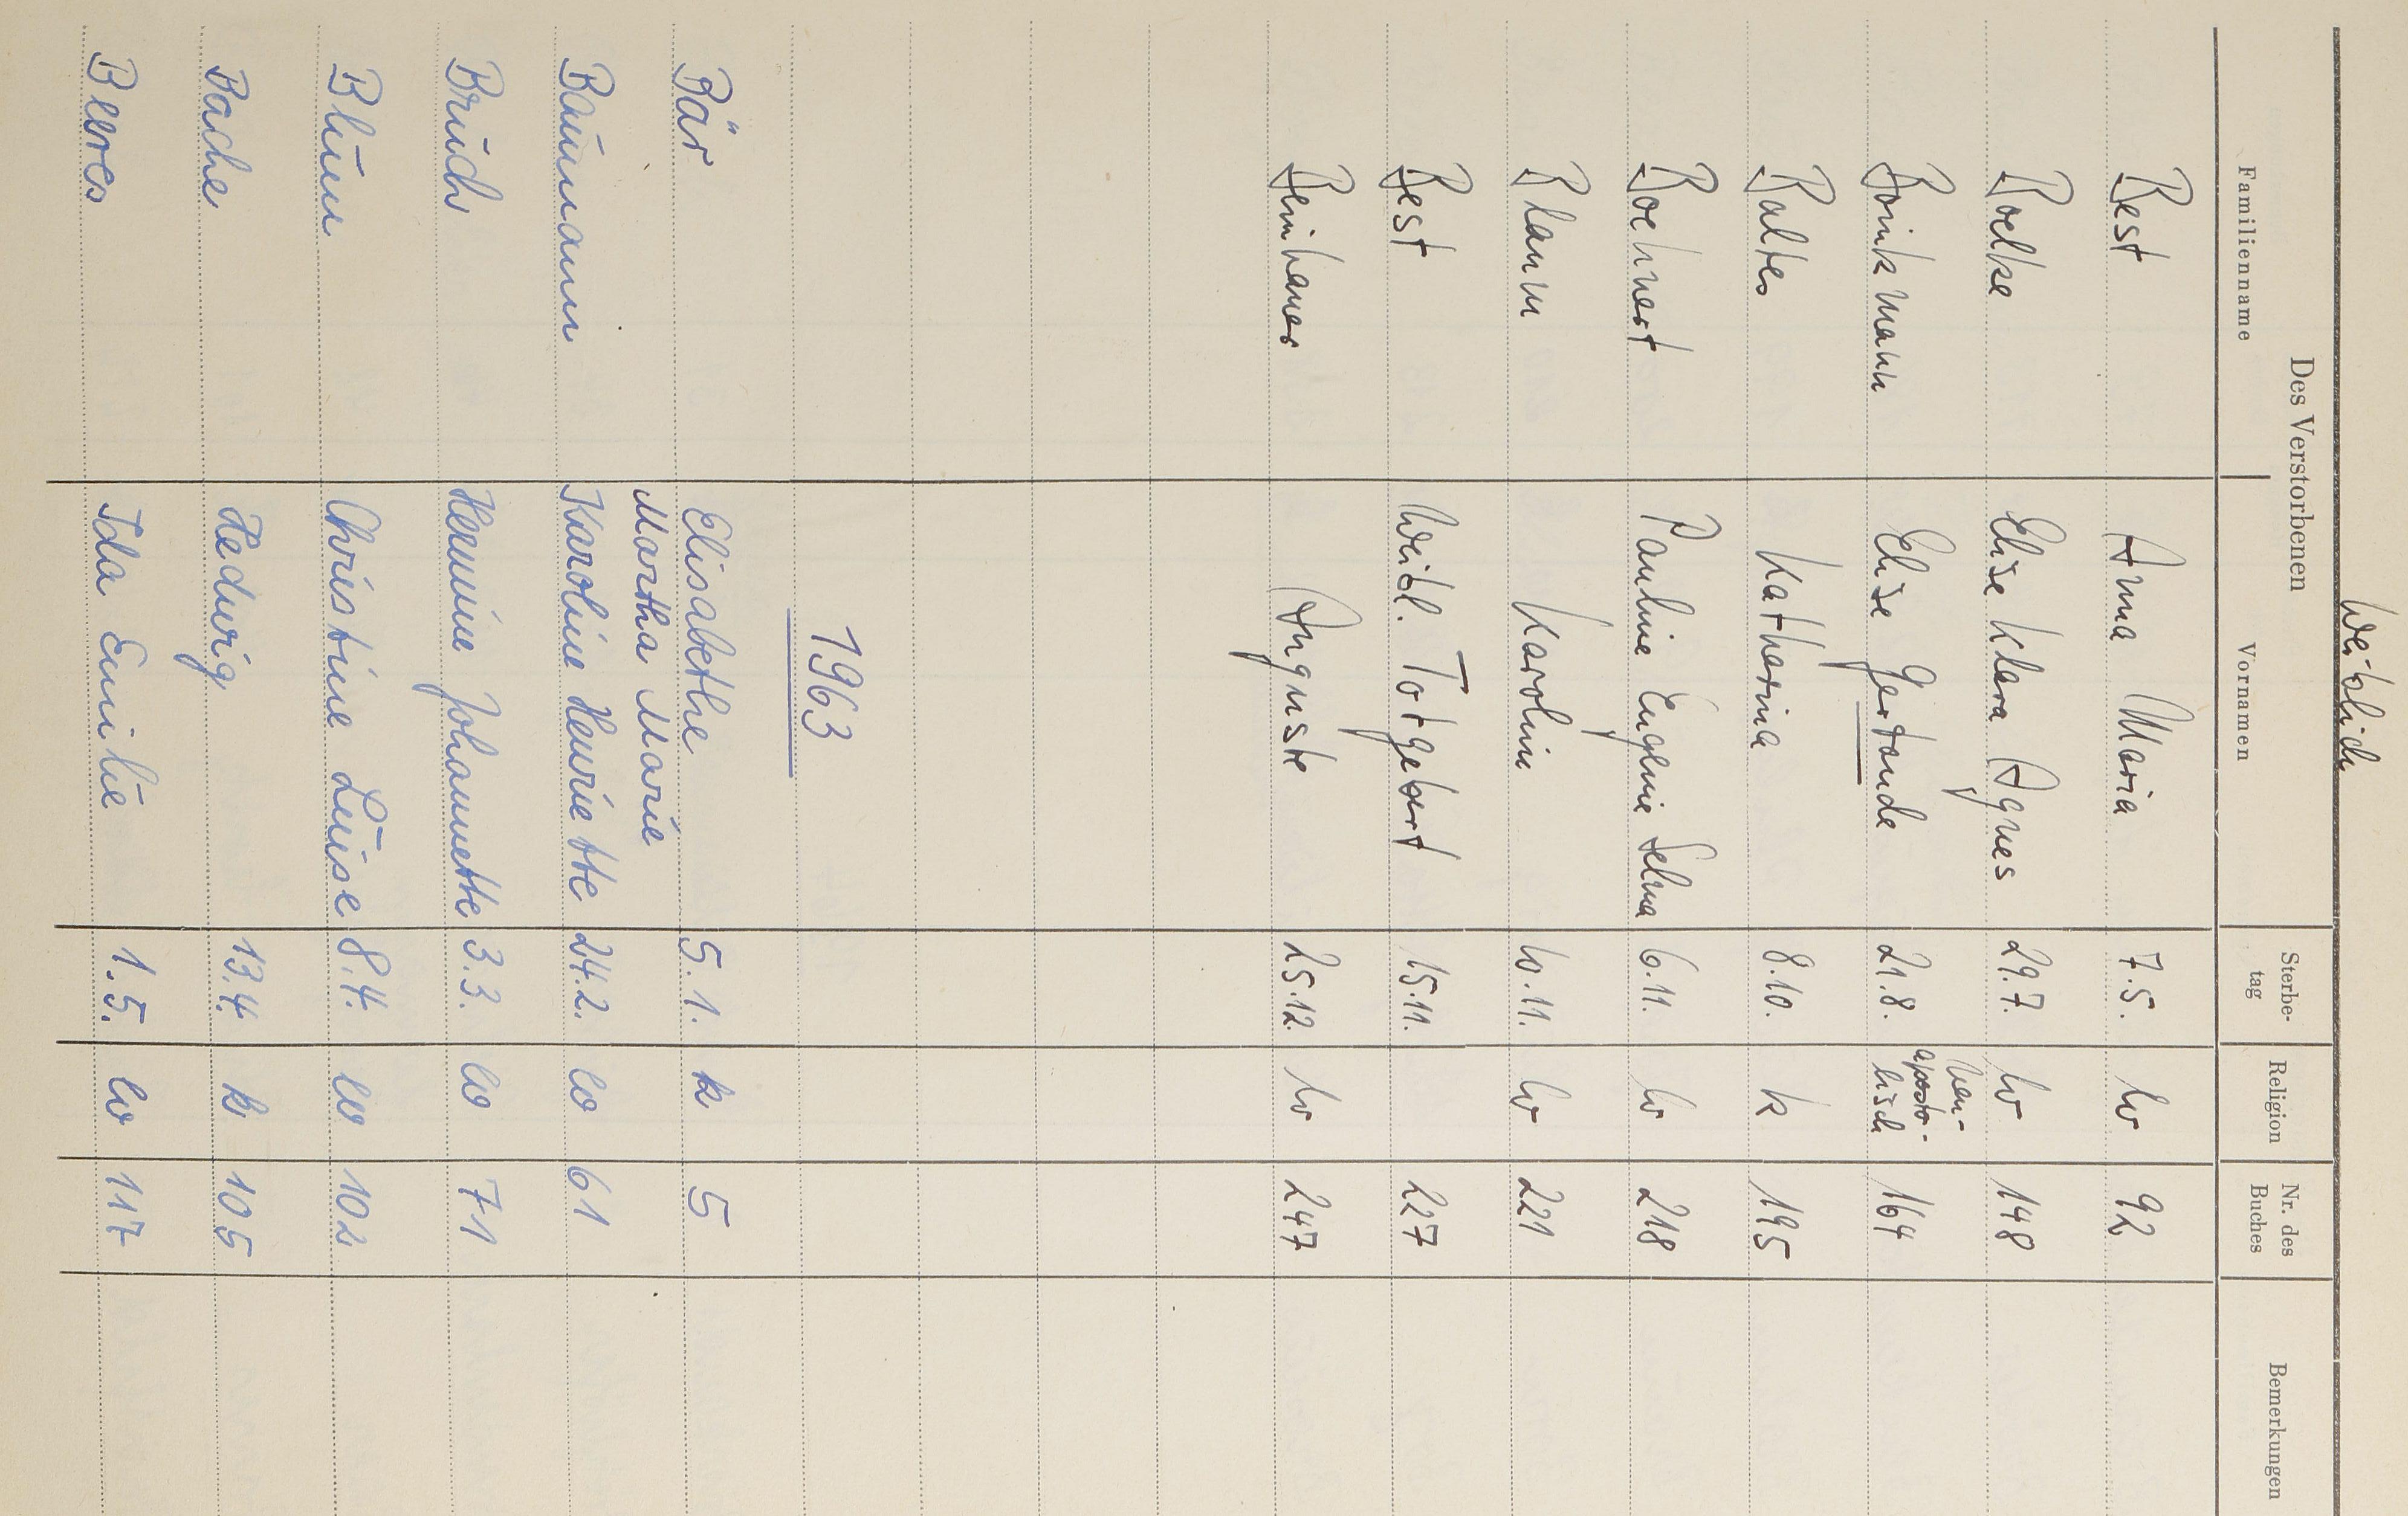 weiblich
Des Verstorbenen
Familienname Vornamen Sterbe-tag Religion Nr. des Buches Bemerkungen
Best Anna Maria 7.5. ev 92
Boelke Elise Klara Agnes 29.7. ev 148
Brinkmann Elise Gertrude 21.8. neu-apostolisch 164
Baltes Katharina 8.10. k 195
Boehnert Pauline Eugenie Selma 6.11. ev 218
Blaum Karolin 10.11. ev 221
Best weibl. Totgeburt 15.11. 227
Beinhauer Auguste 25.12. ev 247
1963
Bär Elisabethe 5.1. k 5
Martha Marie
Baumann Karoline Henriette 24.2. ev 61
Bruch Hermine Johannette 3.3. ev 71
Blum Christine Luise 8.4. ev 102
Bache Hedwig 13.4. k 105
Beeres Ida Emilie 1.5. ev 117